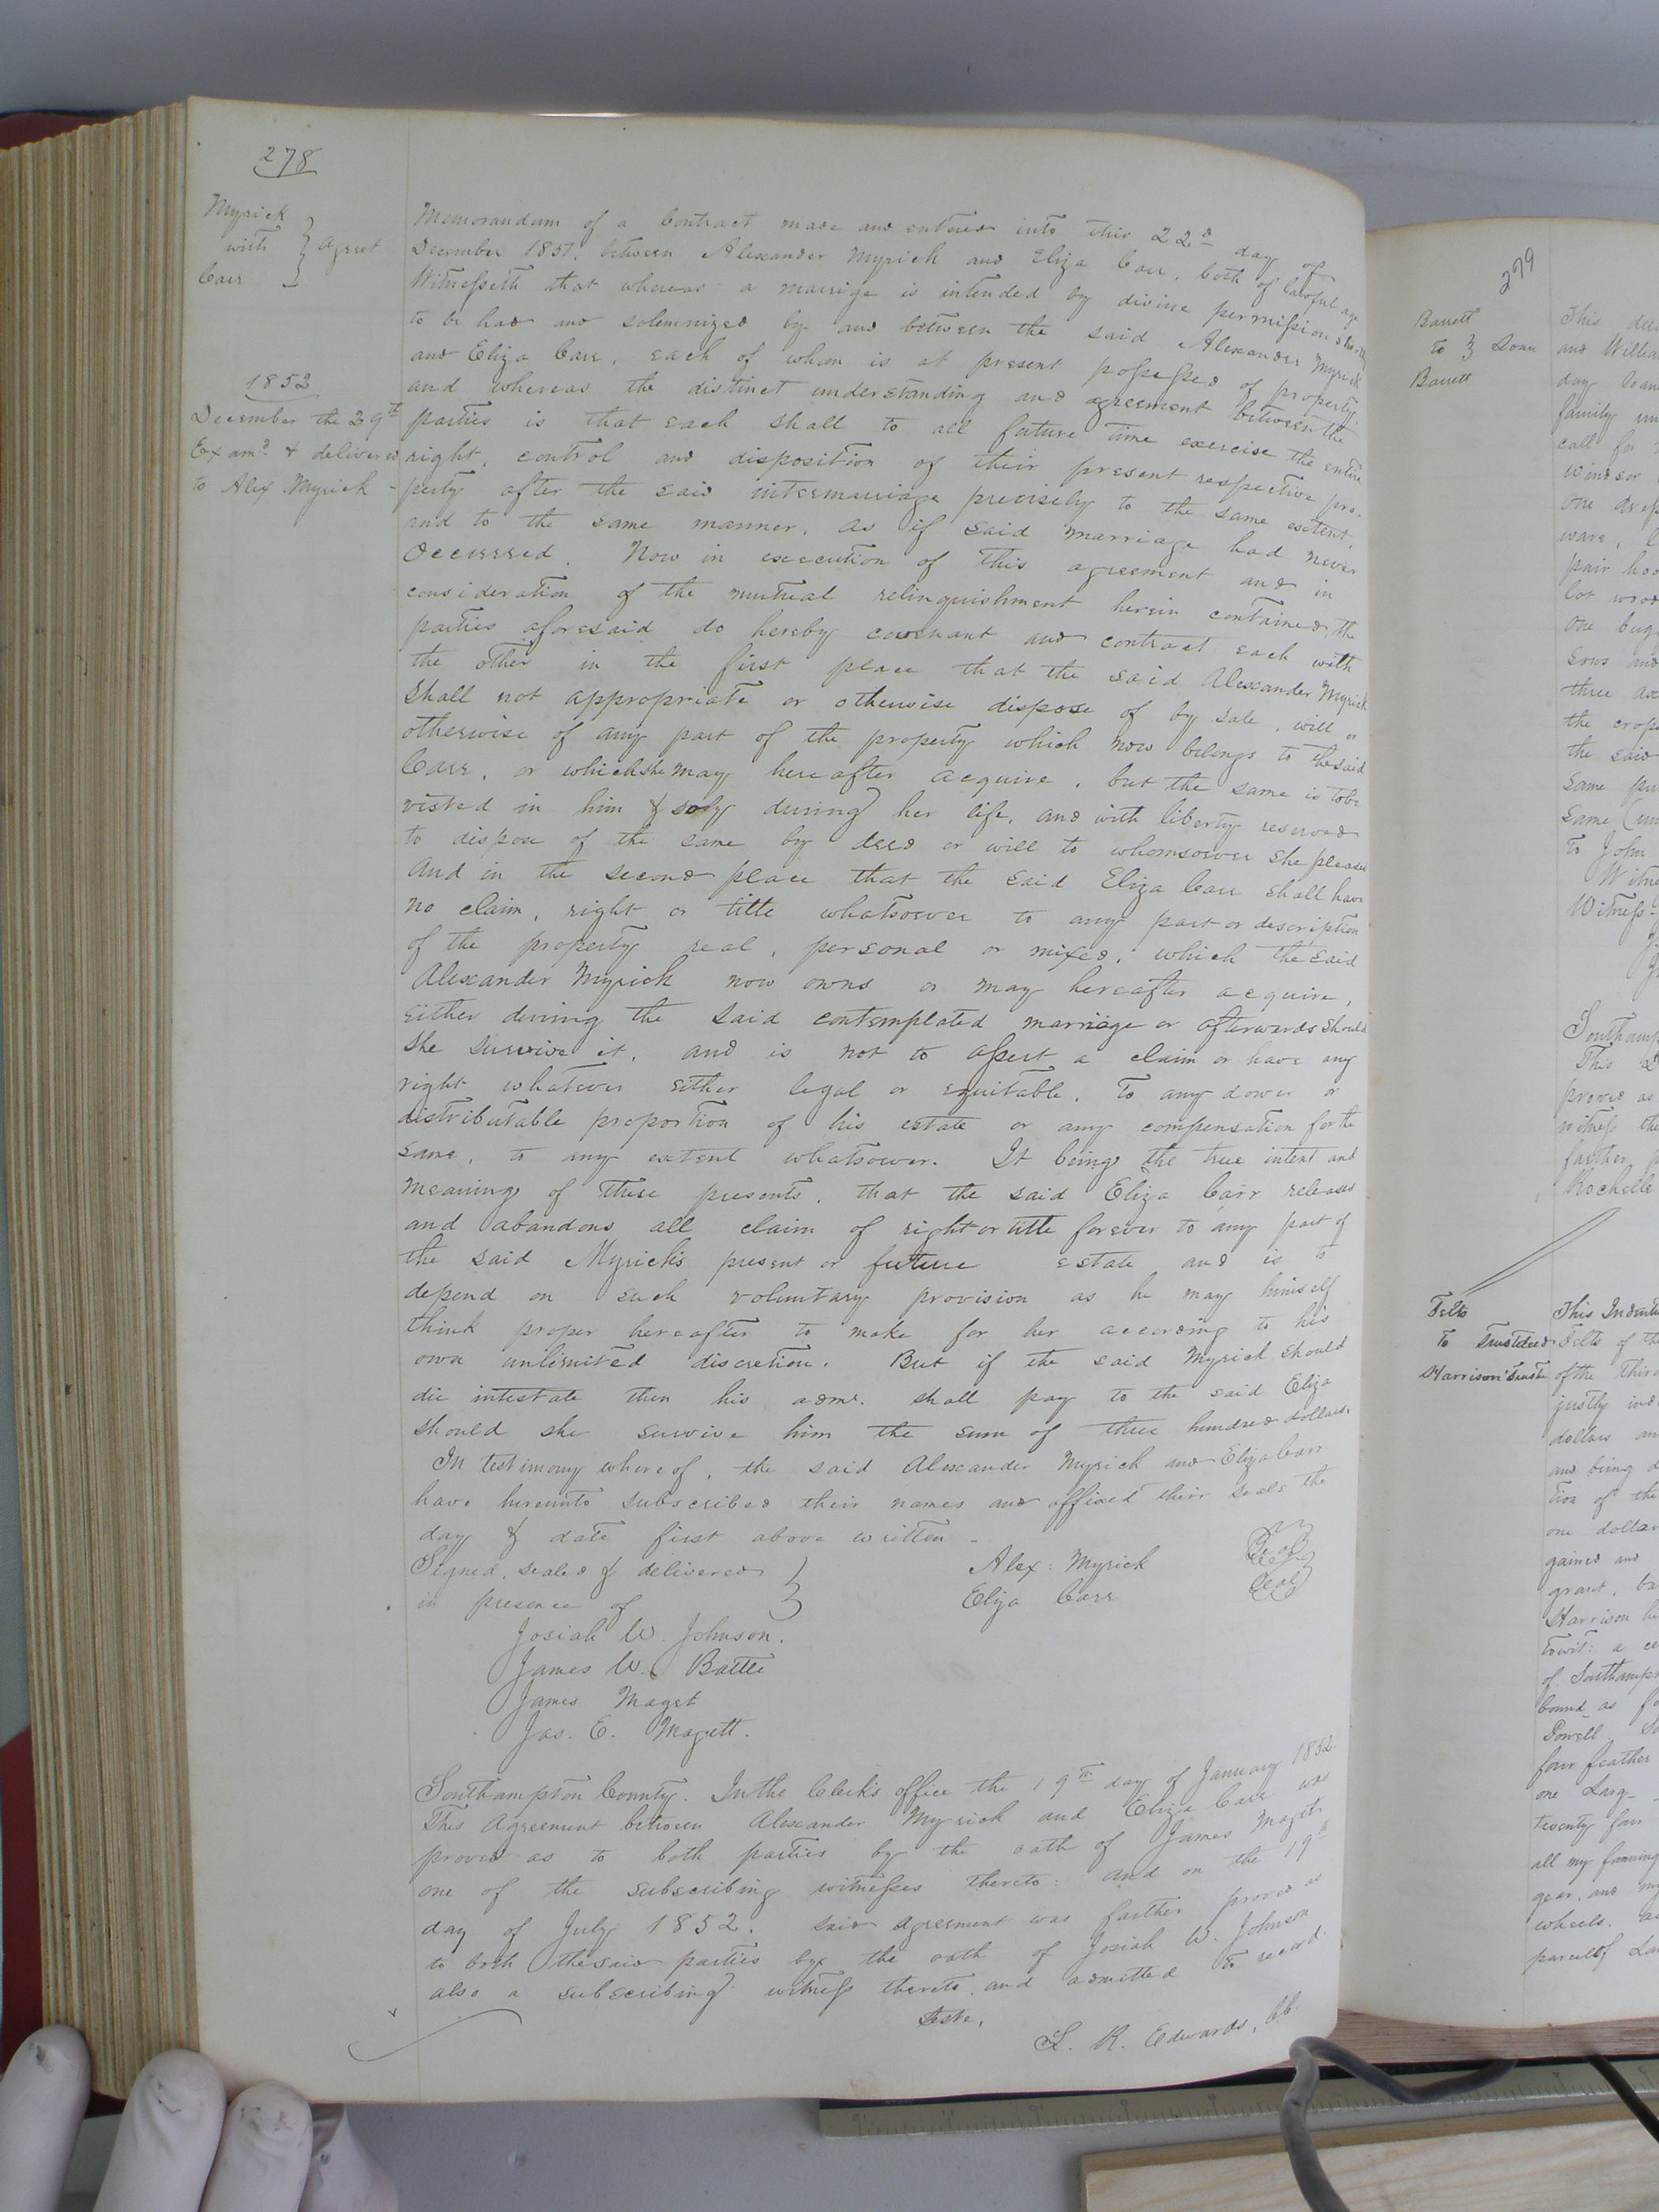 278
Myrick
with } Agreet
Carr
Memorandum of a Contract made and entered into this 22d day of
December 1851. between Alexander Myrick and Eliza Carr, both of lawful age
Witnesseth that whereas a marrige is intended by divine permission shortly
to be had and solemnized by and between the said Alexander Myrick
and Eliza Carr, each of whom is at present possessed of property,
1852
and whereas the distinct understanding and agreement between the
December the 29th
parties is that each shall to all future time exercise the entire
Examd & delivered
right, control and disposition of their present respective pro-
to Alex Myrick -
perty after the said intermarriage precisely to the same extent,
and to the same manner, as if said marriage had never
Occurred. Now in execution of this agreement and in
consideration of the mutual relinquishment herein contained, the
parties aforesaid do hereby covenant and contract each with
the other in the first place that the said Alexander Myrick
shall not appropriate or otherwise dispose of by sale, will or
otherwise of any part of the property which now belongs to the said
Carr, or which she may hereafter acquire, but the same is to be
visted in him & soly during her life, and with liberty reserved
to dispose of the same by deed or will to whomsoever she pleases
And in the second place that the said Eliza Carr shall have
no claim, right or title whatsoever to any part or description
of the property real, personal or mixed, which the said
Alexander Myrick now owns or may hereafter acquire,
either during the said contemplated marriage or afterwards should
she survive it, and is not to assert a claim or have any
right whatever either legal or equitable, to any dower or
distributable proportion of his estate or any compensation for the
same, to any extent whatsoever. It being the true intent and
meaning of these presents, that the said Eliza Carr releases
and abandons all claim of right or title forever to any part of
the said Myrick's present or future estate and is to
depend on such voluntary provision as he may himself
think proper hereafter to make for her according to his
own unlimited discretion. But if the said Myrick should
die intestate then his admr. shall pay to the said Eliza
should she survive him the sum of three hundred dollars.
In testimony whereof, the said Alexander Myrick and Eliza Carr
have hereunto subscribed their names and affixed their seals the
day & date first above written -
Signed, sealed & delivered } Alex: Myrick Seal
in presence of Eliza Carr Seal
Josiah W. Johnson.
James W. Battle
James Maget
Jas. E. Magett.
Southampton County. In the Clerk's office the 19th day of January 1852.
This Agreement between Alexander Myrick and Eliza Carr was
proved as to both parties by the oath of James Maget
one of the subscribing witnesses thereto: and on the 19th
day of July 1852. said agreement was farther proved as
to both the said parties by the oath of Josiah W. Johnson
also a subscribing witness thereto, and admitted to record.
Teste,
L. R. Edwards, CC.
279
Barrett
to } Loan
Barrett
This
and William
day loan
family
call for
windsor
one
ware,
pair
lot wood
one
sows and
three
the crop
the said
same
same
to John
Witness
Southamp
This
proved as
witness the
farther
Rochelle
Felts
to Trustdeed
Harrison Truste
This Indentu
Felts of the
of the third
justly
dollars
and being
tion of the
one dollar
gained and
grant, ba
Harrison
towit: a
of Southamp
bound as
Powell
four feather
one Larg
twenty four
all my farming
gear, and my
wheels.
parcel of Lan